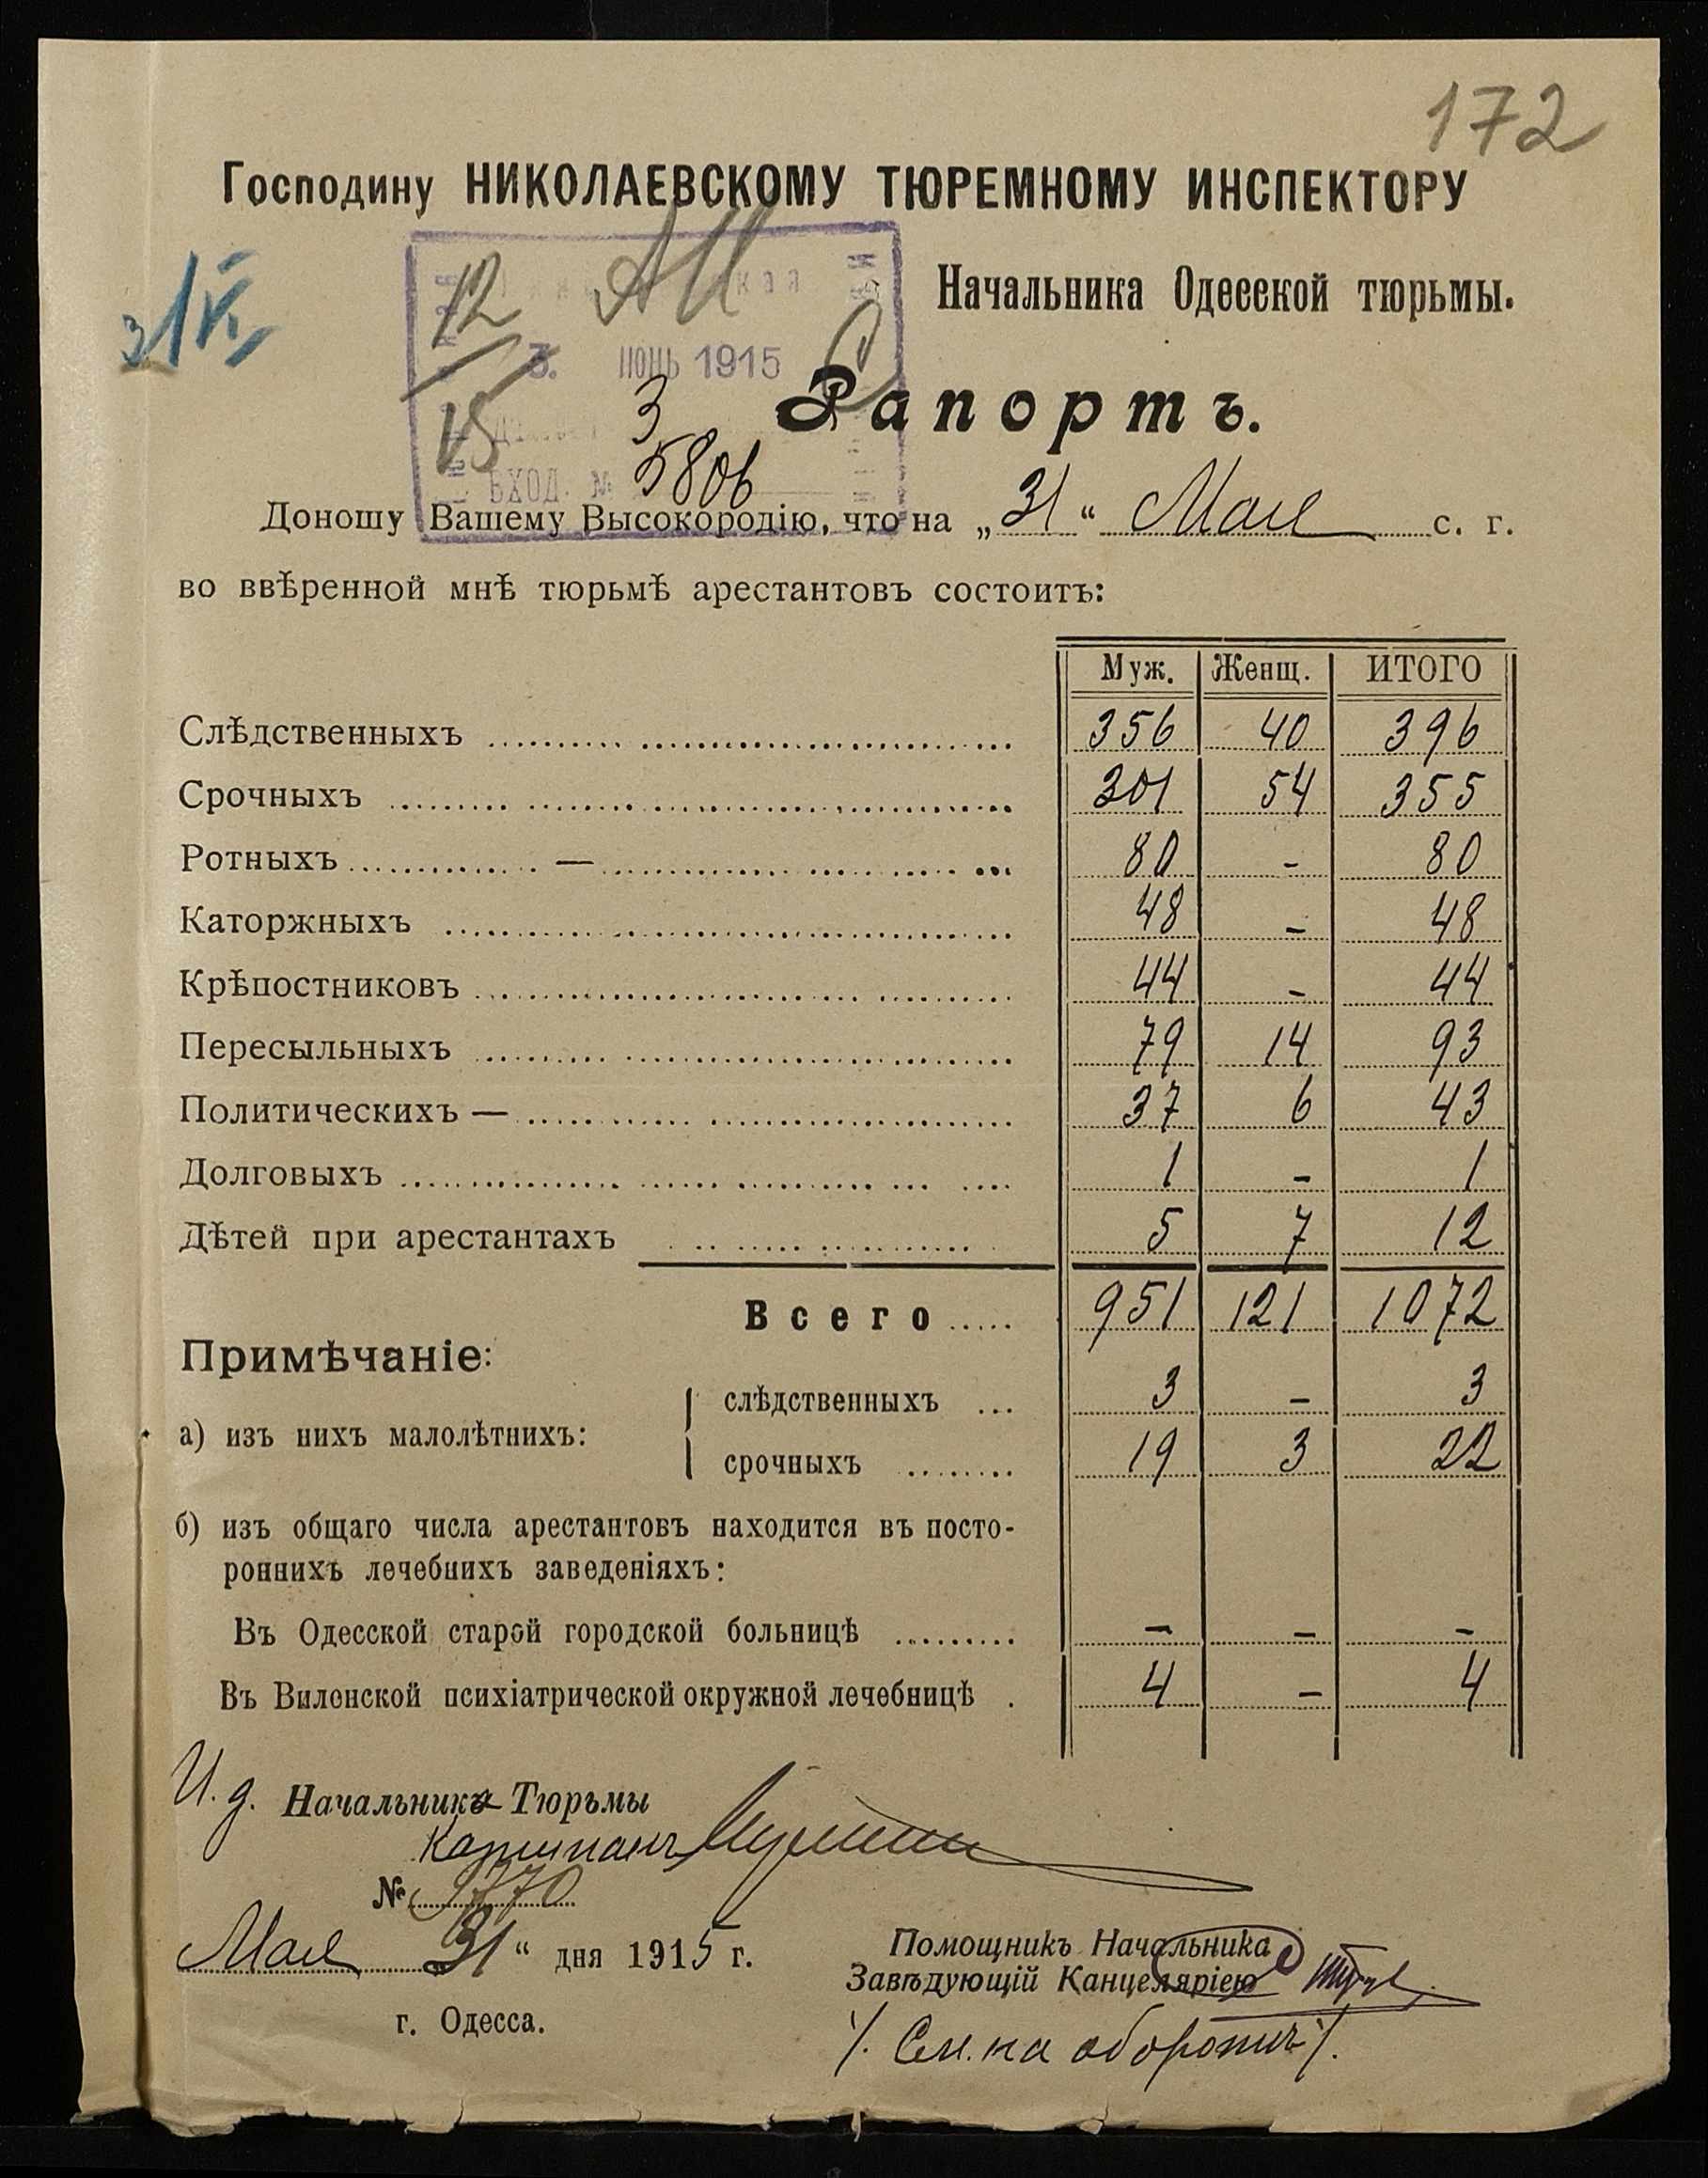 172
Господину НИКОЛАЕВСКОМУ ТЮРЕМНОМУ ИНСПЕКТОРУ
Начальника Одесской тюрьмы.
12
15
3. ІЮНЬ 1915
Рапортъ.
3
ВХОД. № 5806
Доношу Вашему Высокородію, что на „31“ Мая с. г.
во ввѣренной мнѣ тюрьмѣ арестантовъ состоитъ:
Муж. Женщ. ИТОГО
Слѣдственныхъ 356 40 396
Срочныхъ 301 54 355
Ротныхъ — 80 - 80
Каторжныхъ 48 - 48
Крѣпостниковъ 44 - 44
Пересыльныхъ 79 14 93
Политическихъ — 37 6 43
Долговыхъ 1 - 1
Дѣтей при арестантахъ 5 7 12
Всего 951 121 1072
Примѣчаніе:
а) изъ нихъ малолѣтнихъ:
слѣдственныхъ 3 - 3
срочныхъ 19 3 22
б) изъ общаго числа арестантовъ находится въ посто-
роннихъ лечебнихъ заведеніяхъ:
Въ Одесской старой городской больницѣ - - -
Въ Виленской психіатрической окружной лечебницѣ 4 - 4
И. д. Начальника Тюрьмы
Капитанъ
№ 9770
Мая 31“ дня 1915 г.
г. Одесса.
Помощникъ Начальника
Завѣдующій Канцеляріею
/. См. на оборотѣ /.